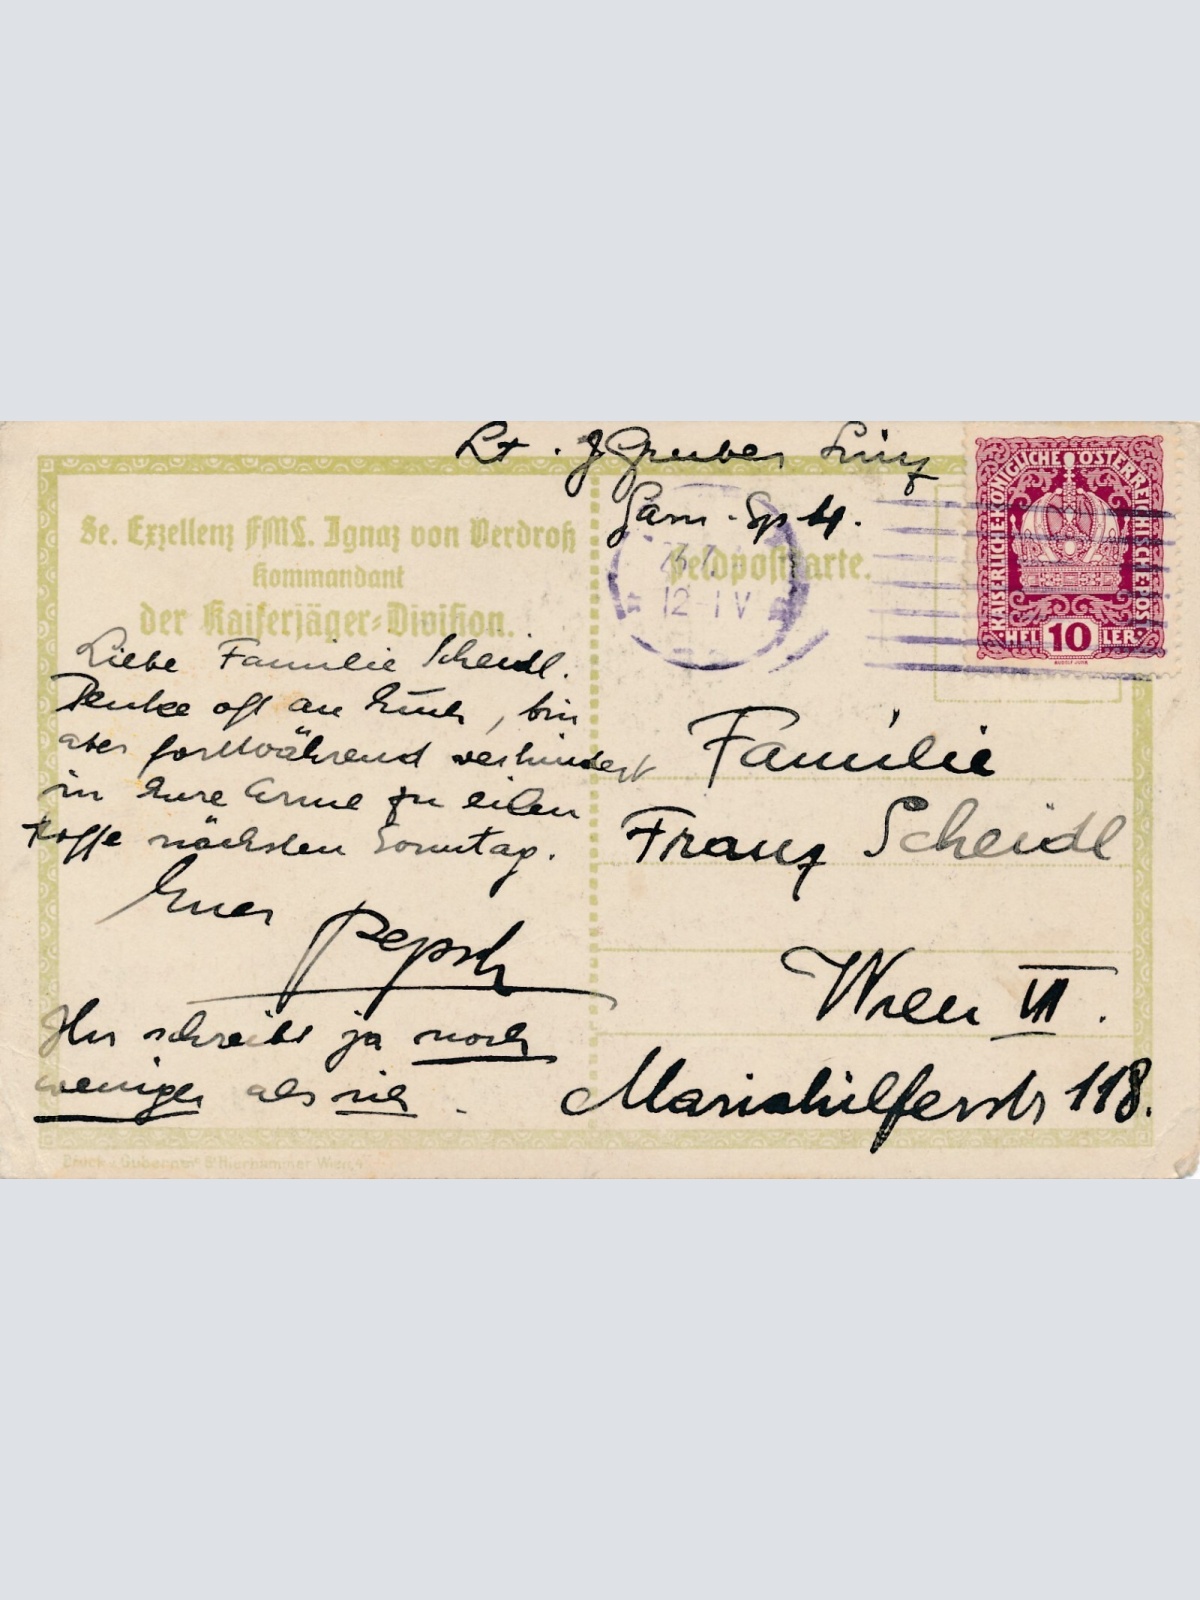 Lt. J Gruber Linz
Garn. Sp 4.
Se. Exzellenz FML. Ignaz von Verdroß
Kommandant
der Kaiserjäger-Division.
Feldpostkarte.
12-IV
KAISERLICHE KÖNIGLICHE ÖSTERREICHISCHE POST
HELLER 10
Liebe Familie Scheidl.
Denke oft an Euch, bin
aber fortwährend verhindert
in Eure Arme zu eilen
Hoffe nächsten Sonntag.
Euer
Pepsch
Ihr schreibt ja noch
weniger als ich.
Familie
Franz Scheidl
Wien VI.
Mariahilferstr 118.